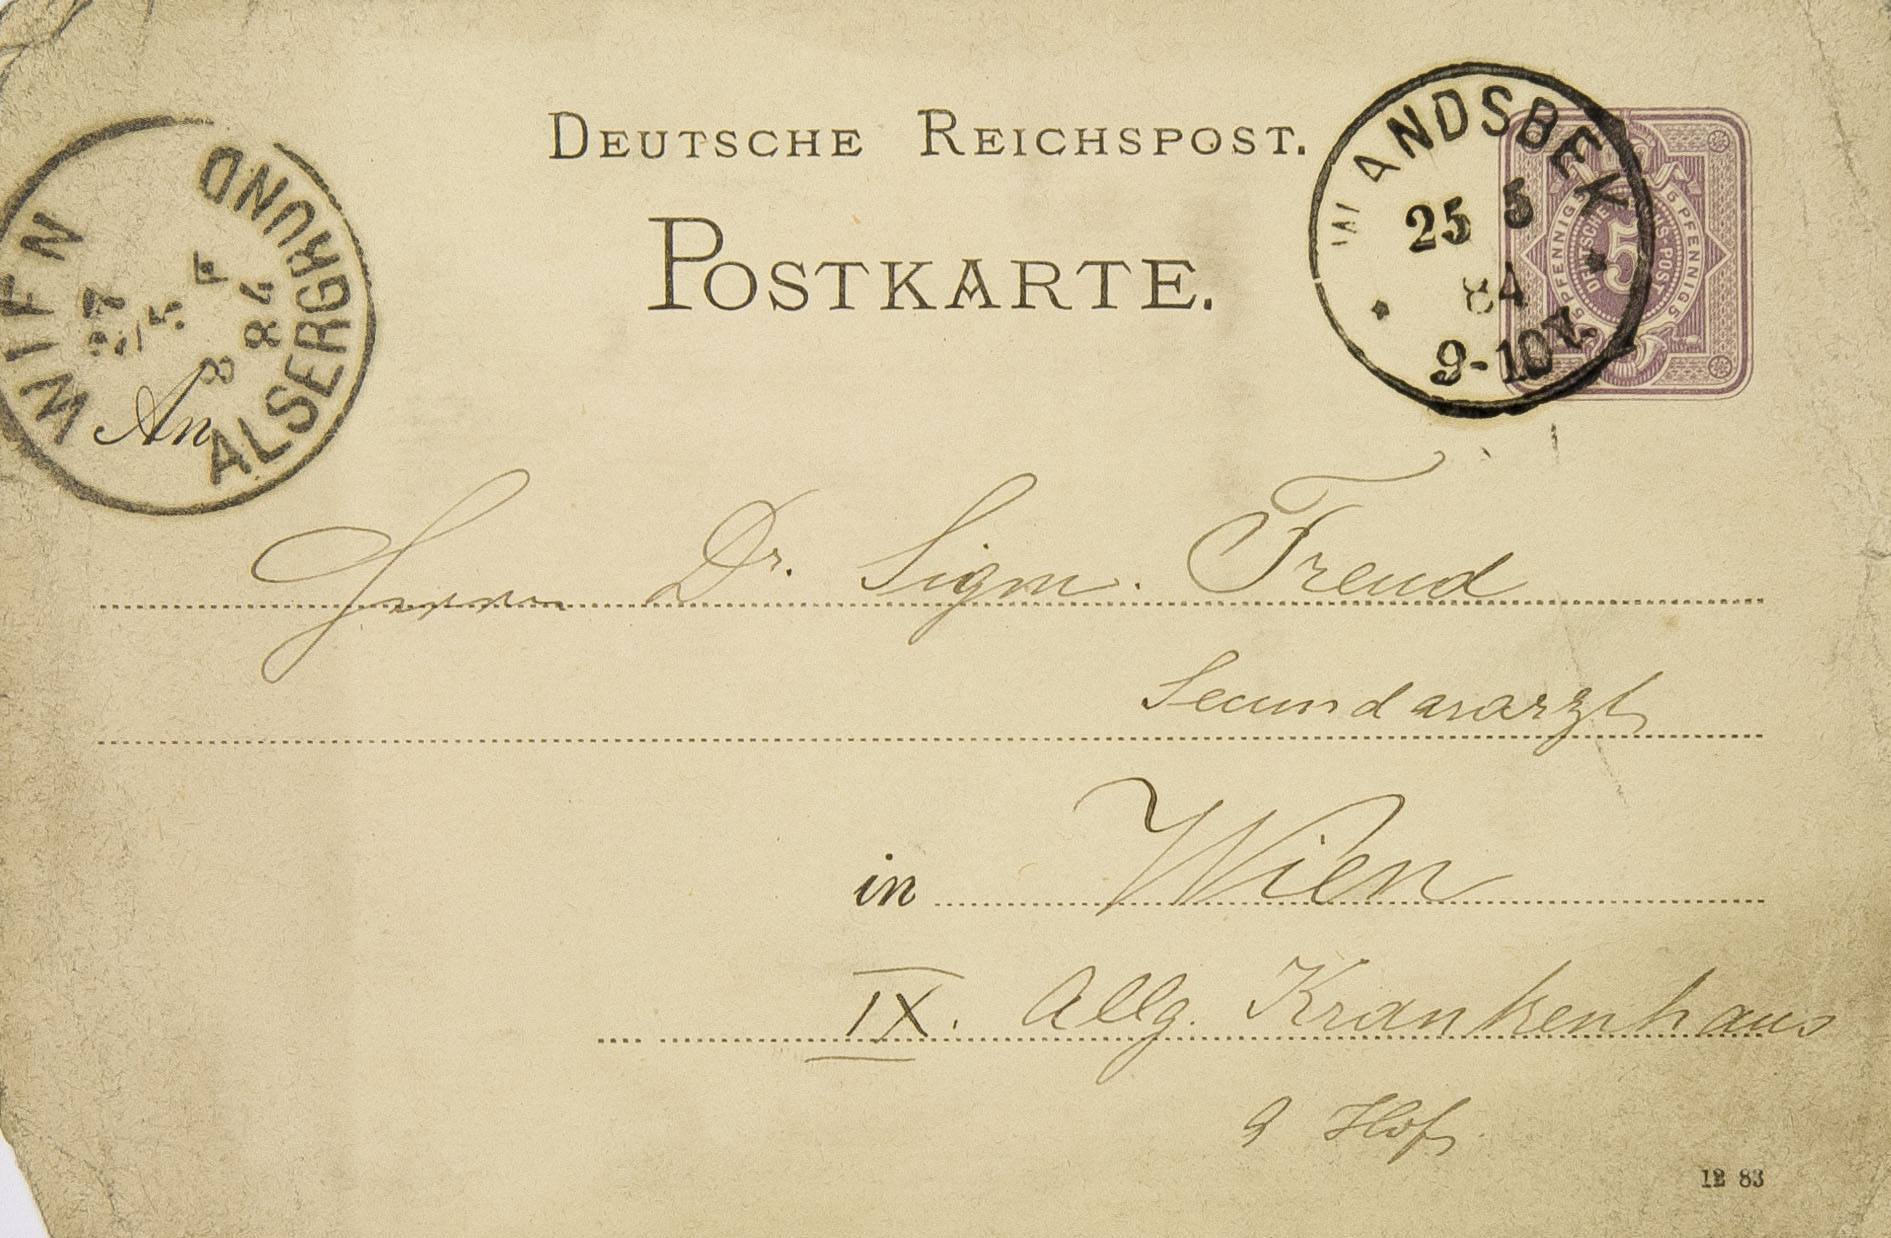 DEUTSCHE REICHSPOST.
POSTKARTE.
WANDSBEK
25 5
84
9-10V.
5 PFENNIG 5 PFENNIG 5
DEUTSCHE REICHS-POST
5
WIEN
ALSERGRUND
27
5
84
8 F
An
Herrn Dr. Sigm. Freud
Secundararzt
in Wien
IX. Allg. Krankenhaus
9 Hof.
12 83